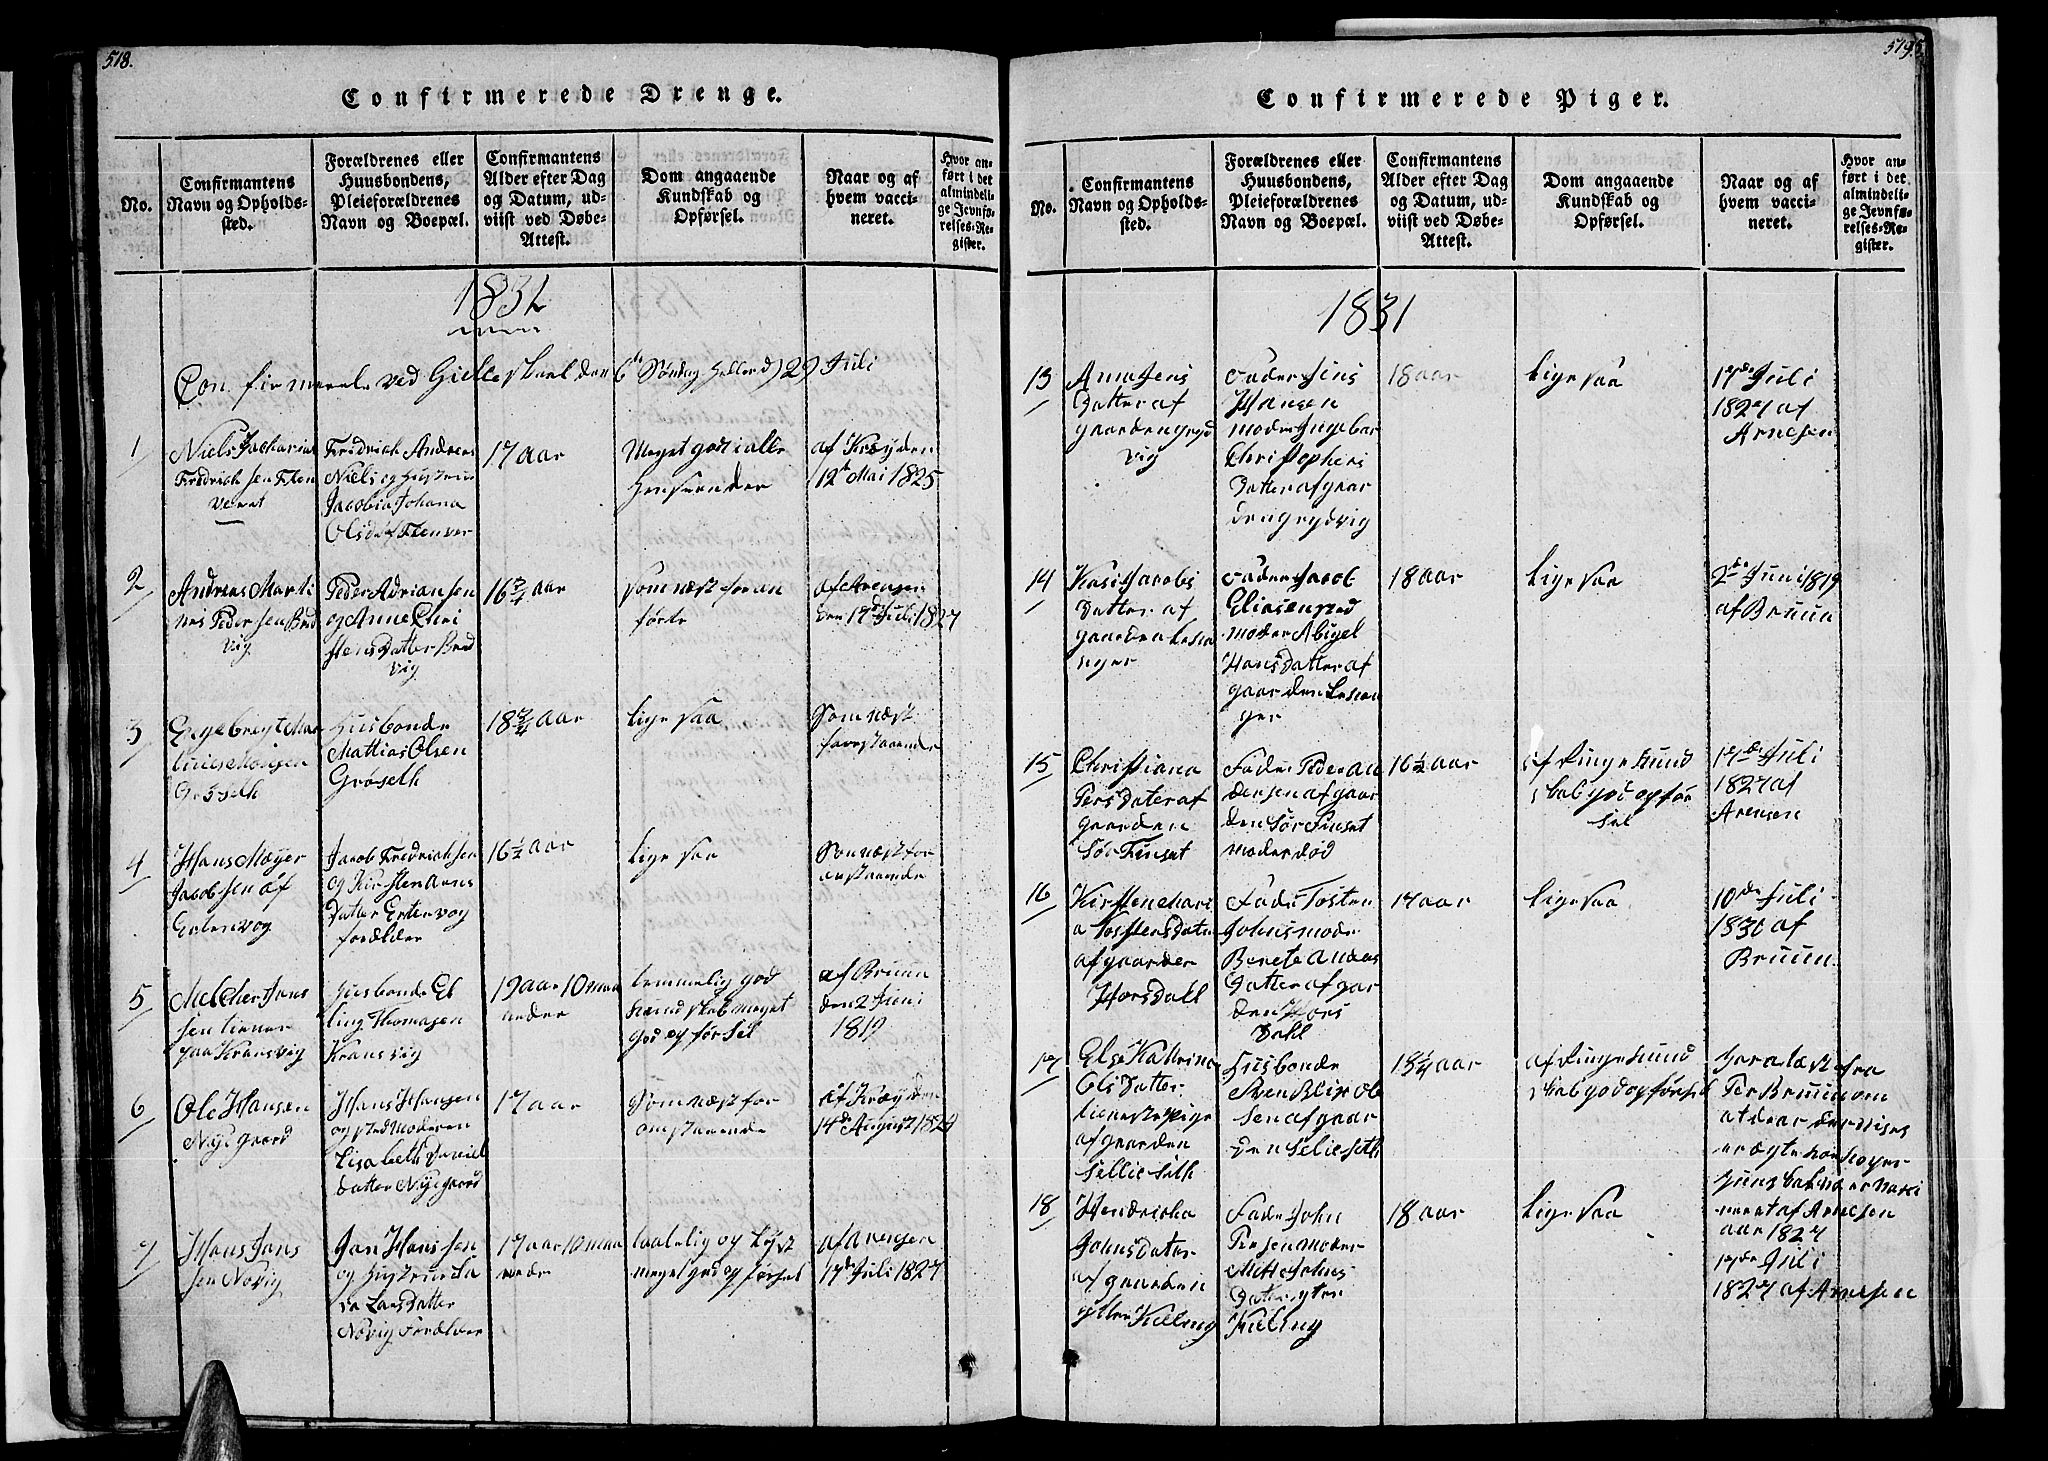 518.
Confirmerede Drenge.
No.
Confirmantens
Navn og Opholds-
sted.
Forældrenes eller
Huusbondens,
Pleieforældrenes
Navn og Boepæl.
Confirmantens
Alder efter Dag
og Datum, ud-
viist ved Døbe-
Attest.
Dom angaaende
Kundskab og
Opførsel.
Naar og af
hvem vacci-
neret.
Hvor an-
ført i det
almindeli-
ge Jevnfø-
relses-Re-
gister.
1831
ved Gilleskaal den 6te Søndag 29 Juli
1
Niels Zacharias
Fredrichsen Flen
veret
Fredrich Andreas
Niels og Hustrue
Jacobia Johana
Olsdat Flenver
17 aar
Meget god i alle
Henseender
af Krøyden
12te Mai 1825
2
Andreas Marti
nus Pedersen Bred
vig
Peder Adriansen
og Anne Chri
stens Datter Bred
vig
16 3/4 aar
Som næst foran
førte
af Arensen
den 17de Juli 1827
3
Gröseth
Husbonde
Mattias Olsen
Gröseth
18 3/4 aar
lige saa
Som næst
forestaaende
4
Hans Mæyer
Jacobsen af
Ertenvog
Jacob Fredrichsen
og Kirsten Arns
Datter Ertenvog
forælder
16 1/2 aar
lige saa
Som næst for
enstaaende
5
Melcher Jans
sen tiener
paa Kransvig
Husbonde El
ling Thomasen
Kransvig
19 aar 10 maa
neder
temmelig god
kundskab meget
god og førsel
af Bruun
den 2 Juni
1819
6
Ole Hansen
Nyegaard
Hans Hansen
og sted Moderen
Lisabeth Daniel
datter Nyegaard
17 aar
Som næst for
omstaaende
af Krøyden
14de August 1829
7
Hans Jans
sen Novig
Jan Hanssen
og Hustru Ida
Larsdatter
Novig Forælder
17 aar 10 maa
neder
taalelig og
meget god opførsel
af Arensen
17de Juli 1827
519.
Confirmerede Piger.
No.
Confirmantens
Navn og Opholds-
sted.
Forældrenes eller
Huusbondens,
Pleieforældrenes
Navn og Boepæl.
Confirmantens
Alder efter Dag
og Datum, ud-
viist ved Døbe-
Attest.
Dom angaaende
Kundskab og
Opførsel.
Naar og af
hvem vacci-
neret.
Hvor an-
ført i det
almindeli-
ge Jevnfø-
relses-Re-
gister.
1831
13
Anna Jens
Datter af
gaarden gryd
vig
Fader Jens
Hansen
moder Ingebor
Christophers
Datter af gaar
den grydvig
18 aar
lige saa
17de Juli
1827 af
Arnesen
14
Jacobs
Datter af
gaarden
Fader Jacob
Eliesen
moder Abigel
Hans Datter af
gaarden
18 aar
lige saa
2de Juni 1819
af Bruun
15
Christiana
Pers Dater af
gaarden
Sör Finset
Fader Peder An
dersen af gaar
den Sør Finset
moder død
16 1/2 aar
af Ringe kund
skab god opfør
sel
17de Juli
1827 af
Arensen
16
Kirsten Mari
a Tostensdater
af gaarden
Horsdall
Fader Tosten
Johns mode
Berete Anders
Datter af gar
den Hors
dahl
17 aar
lige saa
10de Juli
1830 af
Bruun
17
Else Katrina
Ols Datter
tieneste Pige
af gaarden
Sellie Seth
Husbonde
Sven Blix Ol
sen af gaar
den Selie Seth
18 1/4 aar
af Ringe kund
skab god opførsel
Per Bruun om
neret af Arnesen
aar 1827
18
Hendricha
Johns Dater
af gaarden
ytter Kieling
Fader John
Persen Moder
Mette Johns
Datter yter
Kieling
18 aar
lige saa
17de Juli
1827 af Arnesen